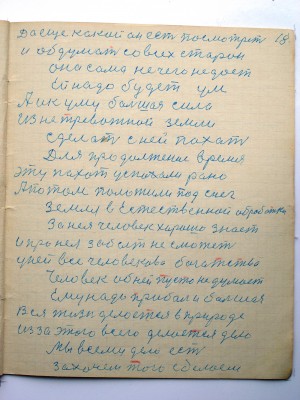 Да еще какой он ест посмотрит 18.
и обдумат со всих старон
она сама нечего недоет
Ей надо будет ум
А ик уму балшая сила
Из нетревожной земли
сделать с ней пахать
Для продолжение время
эту пахот успехали рано
Апотом положим под снег
Земля в Естественной обработки
За нея человек харашо знает
и про нея забыт не сможет
у ней все человеково богатство
Человек об ней пусто не думает
Ему надо прибал и балшая
Вся жизнь делается в природе
Из за этого всего делается дело
Мы всему дело ест
Захочем того сделаем